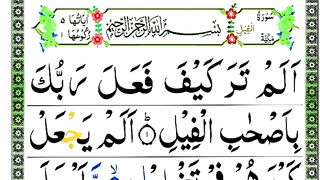 سُورَةُ الْفِيْلِ مَكِّيَّةٌ
بِسْمِ اللهِ الرَّحْمٰنِ الرَّحِيْمِ
اٰيَاتُهَا ٥ رُكُوْعُهَا ١
اَلَمْ تَرَ كَيْفَ فَعَلَ رَبُّكَ
بِاَصْحٰبِ الْفِيْلِ ۝١ اَلَمْ يَجْعَلْ
كَيْدَهُمْ فِيْ